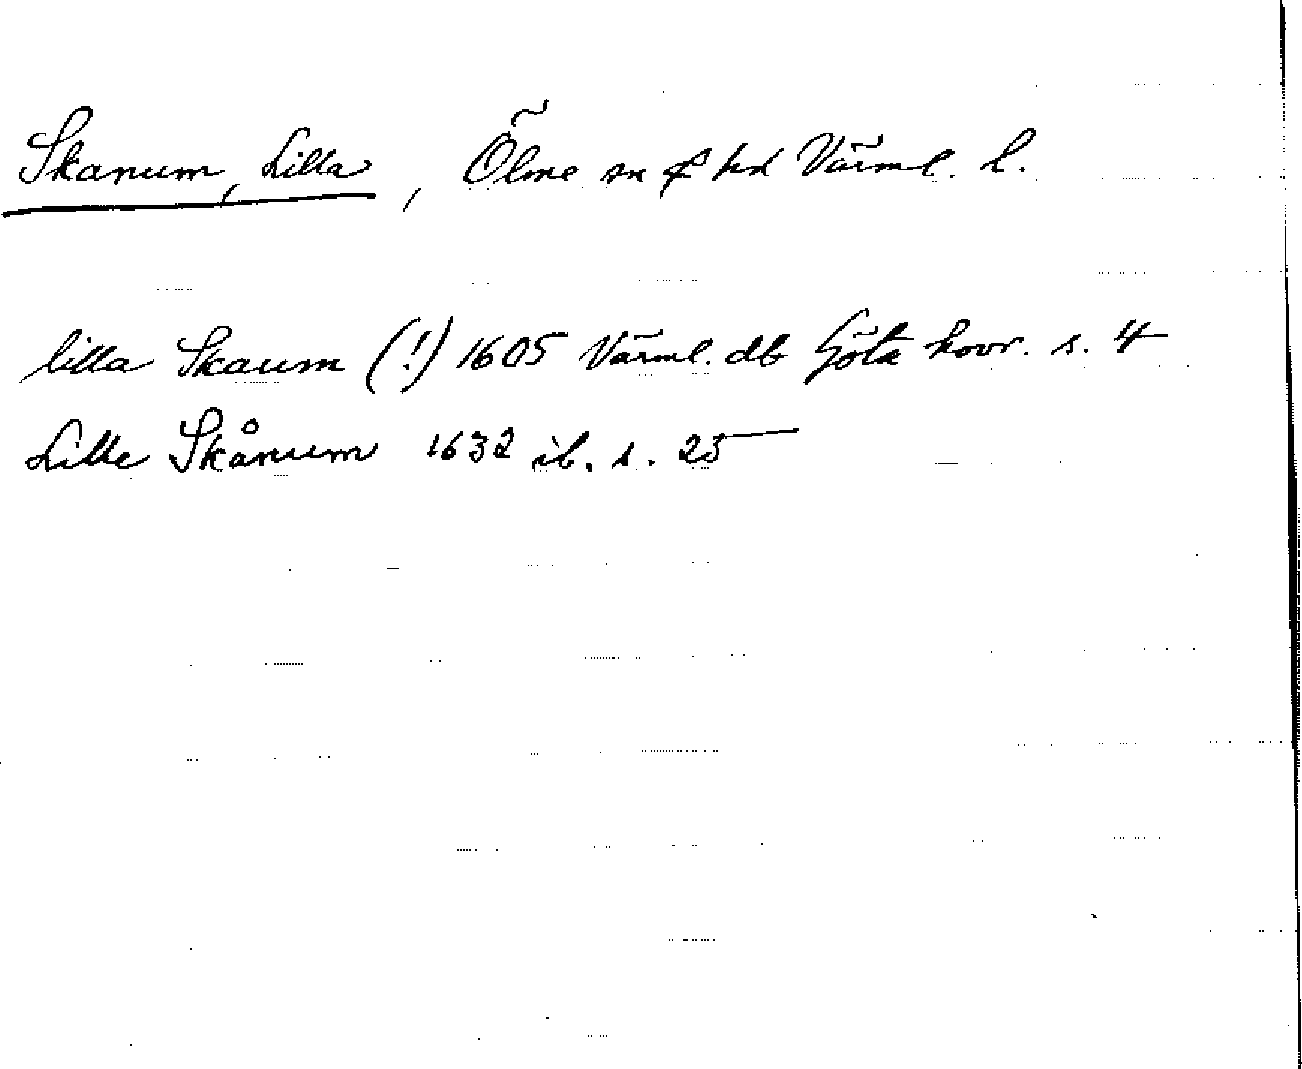 Skanum, Lilla, Ölme sn & hd Värml. l.
lilla Skaum (!) 1605 Värml. db Göta hovr. s. 4
Lille Skånum 1632 ib. s. 25